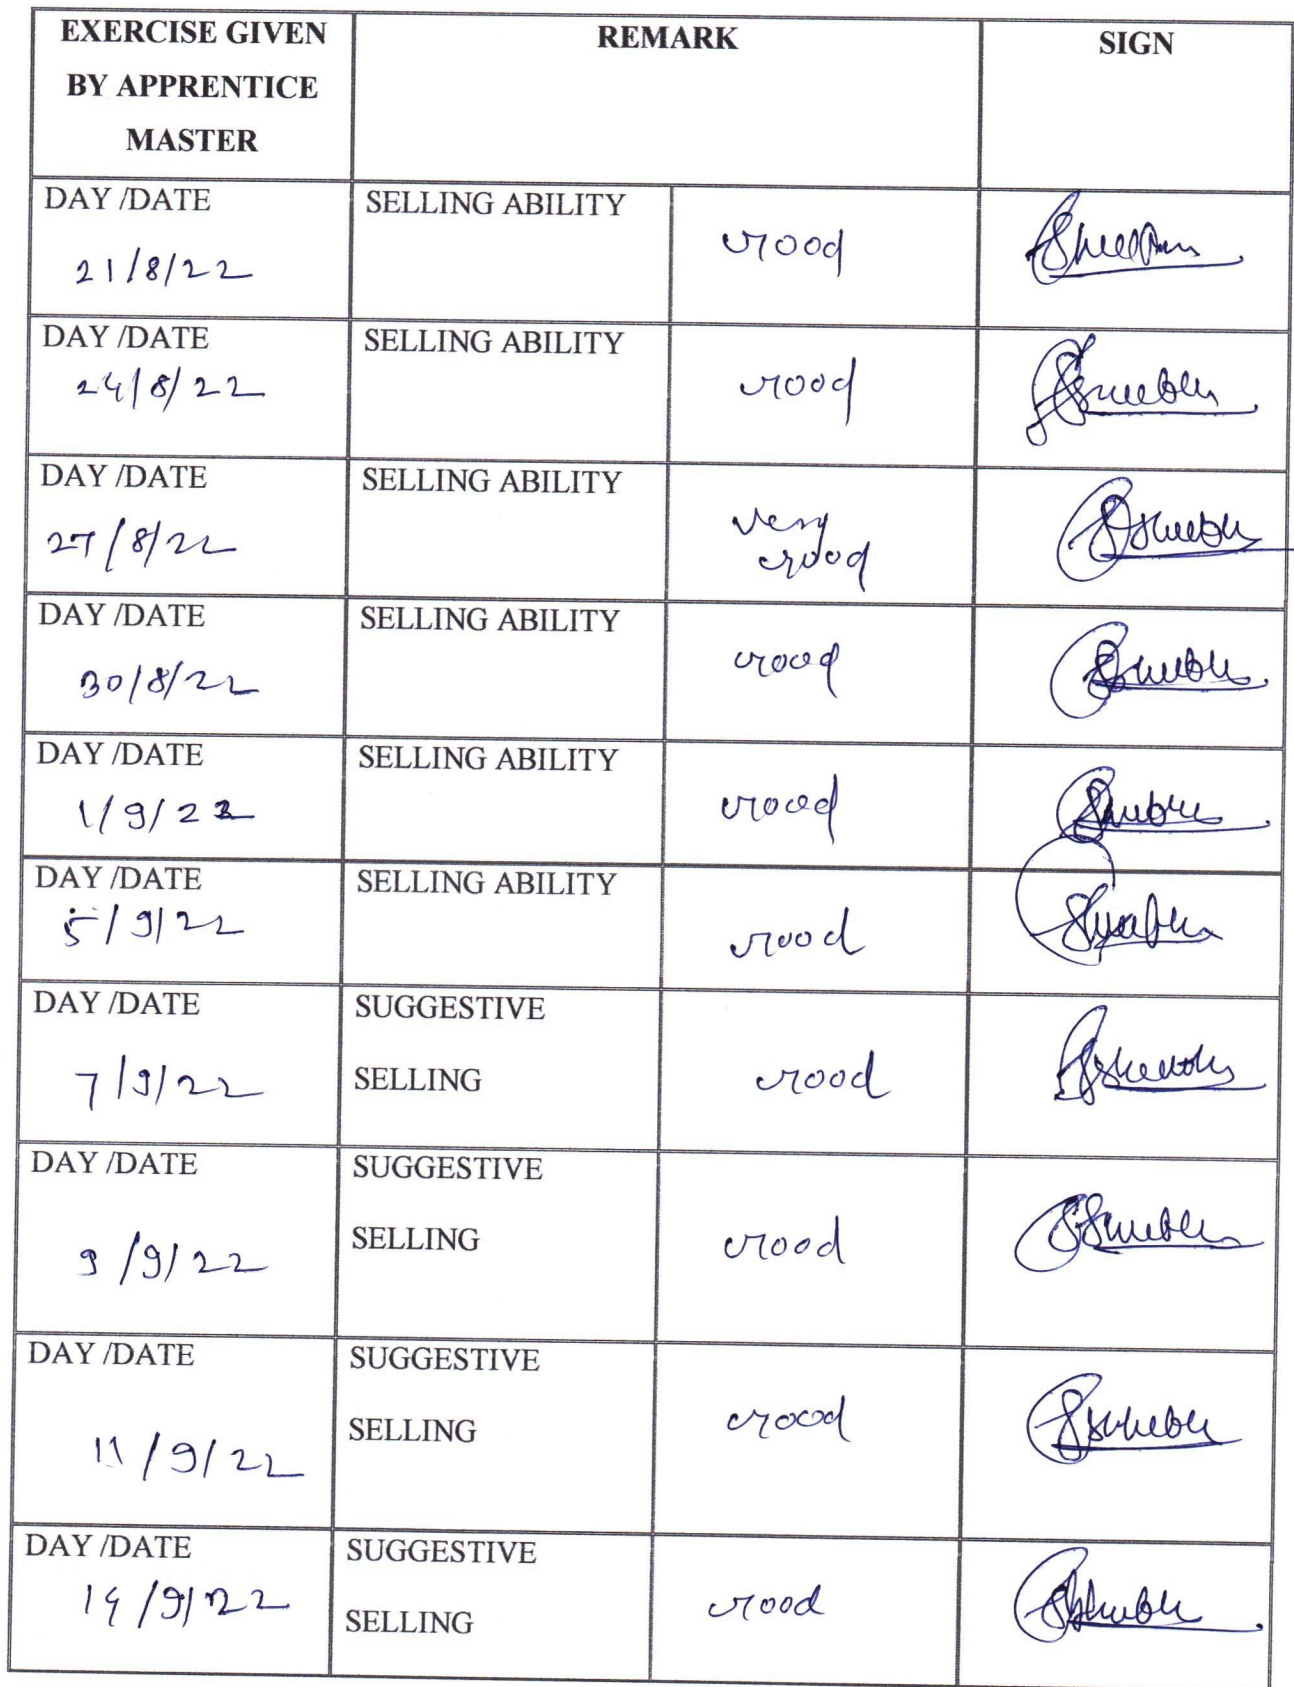 EXERCISE GIVEN
BY APPRENTICE
MASTER
REMARK
SIGN
DAY /DATE
21/8/22
SELLING ABILITY
Good
DAY /DATE
24/8/22
SELLING ABILITY
Good
DAY /DATE
27/8/22
SELLING ABILITY
Very
Good
DAY /DATE
30/8/22
SELLING ABILITY
Good
DAY /DATE
1/9/22
SELLING ABILITY
Good
DAY /DATE
5/9/22
SELLING ABILITY
Good
DAY /DATE
7/9/22
SUGGESTIVE
SELLING
Good
DAY /DATE
9/9/22
SUGGESTIVE
SELLING
Good
DAY /DATE
11/9/22
SUGGESTIVE
SELLING
Good
DAY /DATE
14/9/22
SUGGESTIVE
SELLING
Good